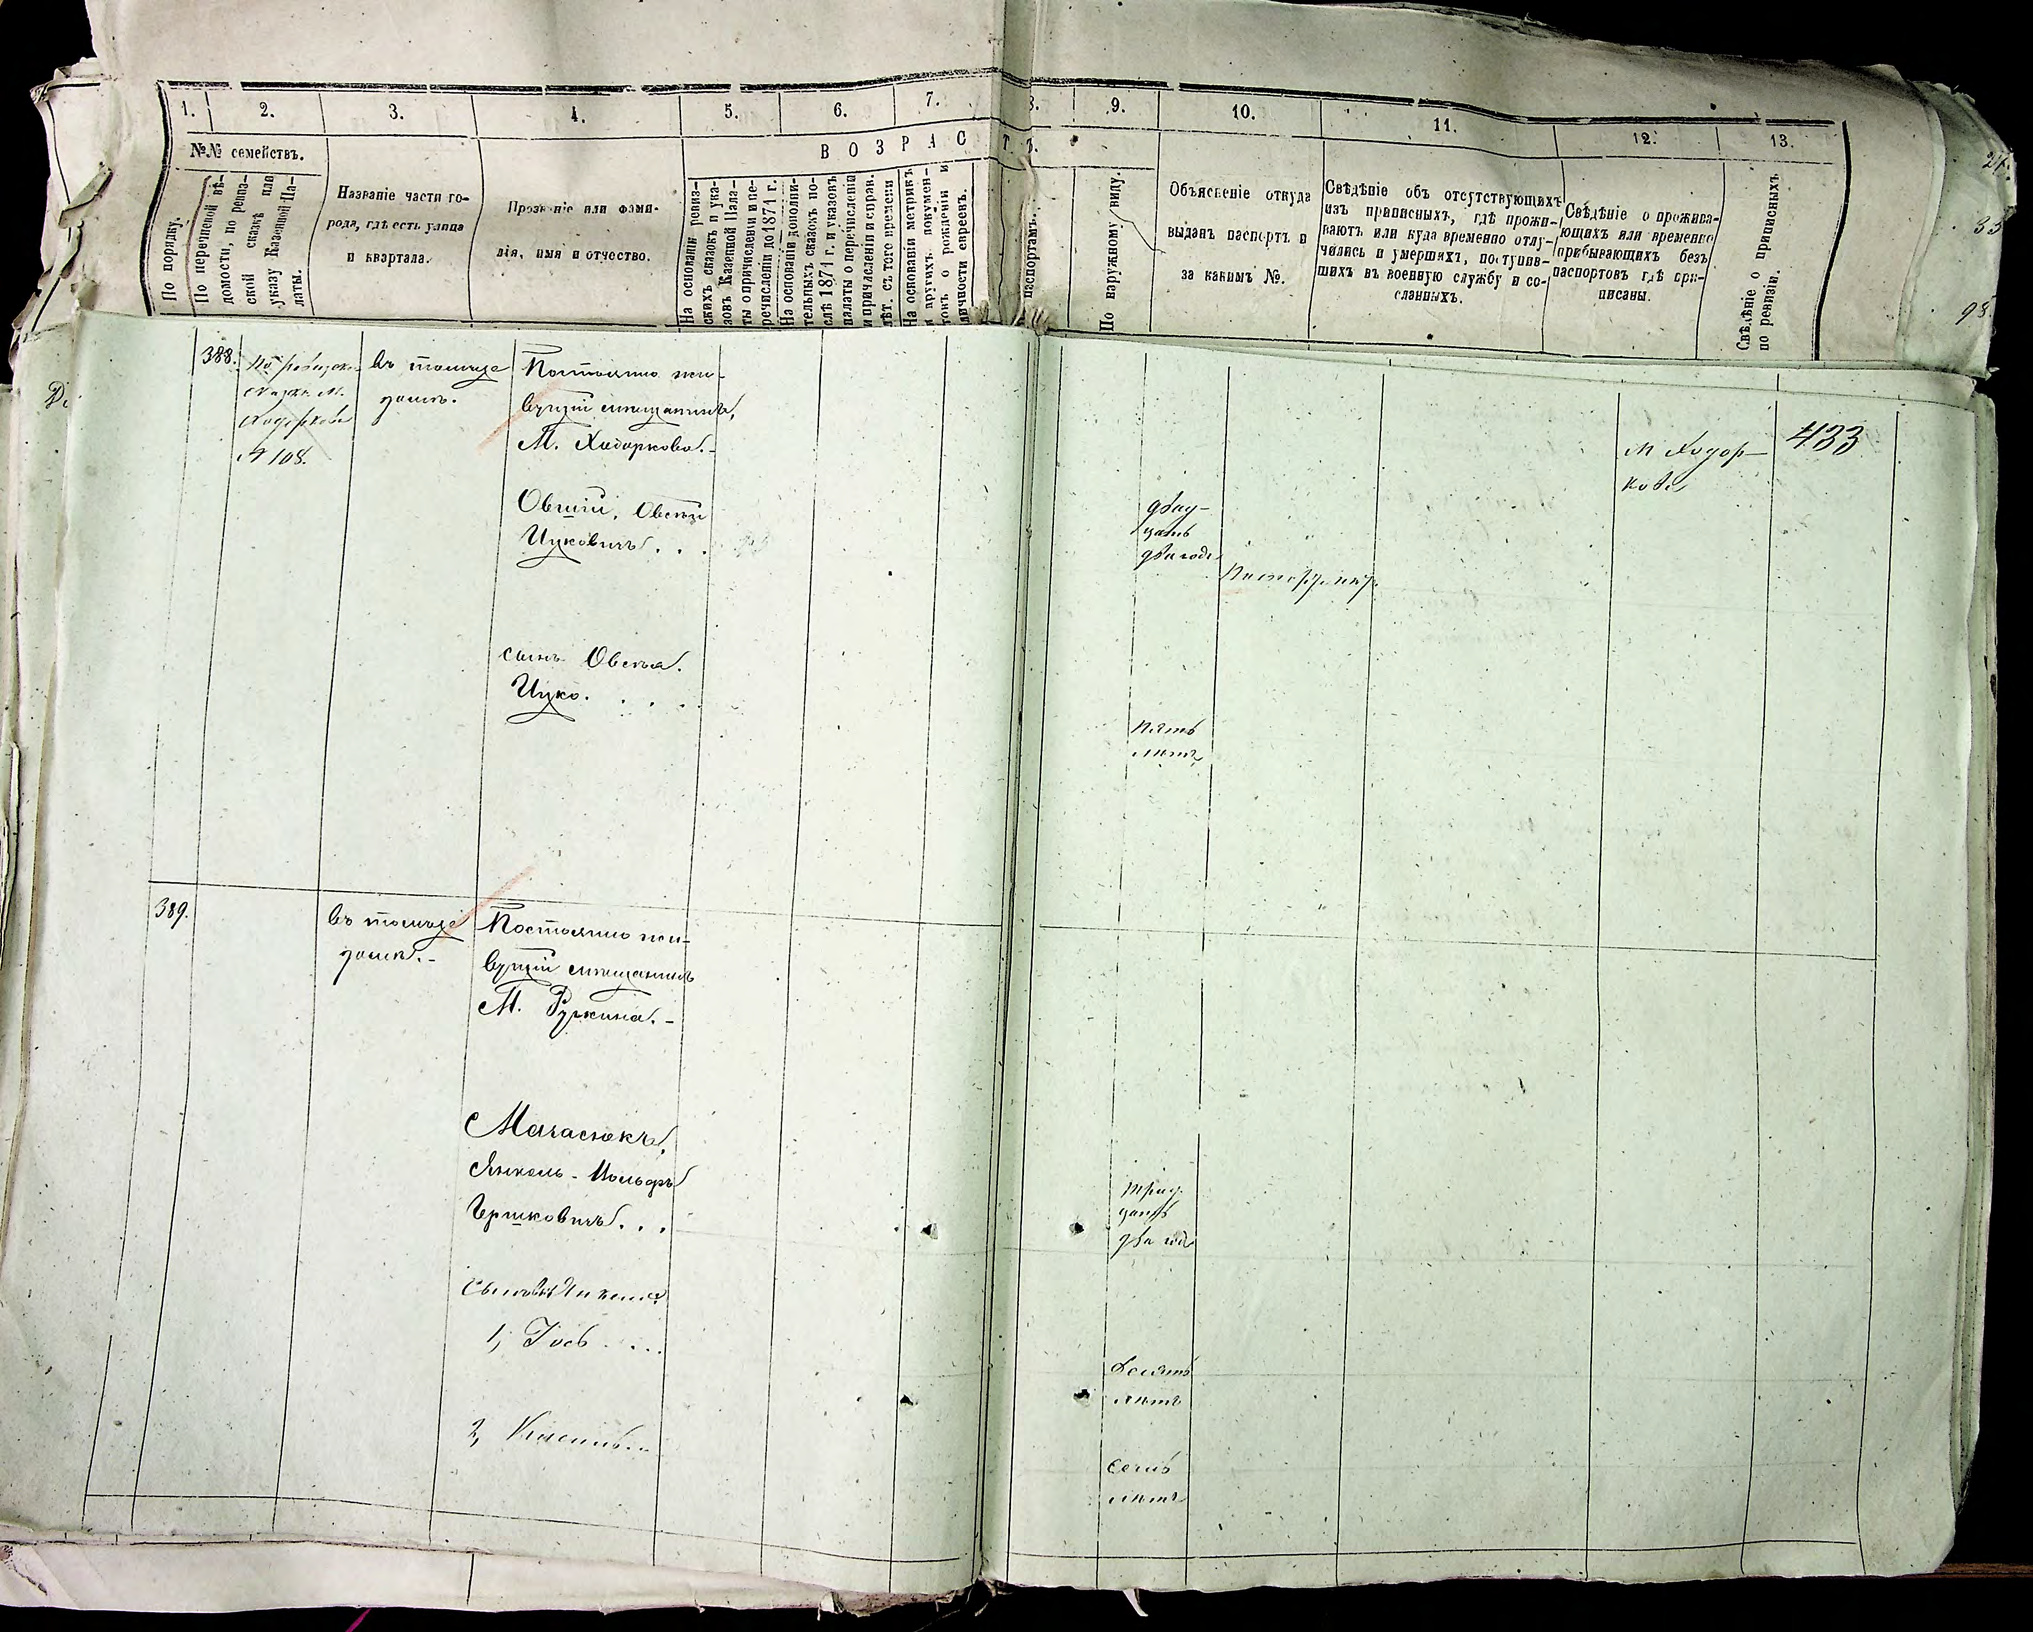 1. 2. 3. 4. 5. 6. 7. 8. 9. 10. 11. 12. 13.
№№ семействъ.
В О З Р А С Т Ъ.
По порядку.
По перечневой вѣ-
домости, по ревиз-
ской сказкѣ или
указу Казенной Па-
латы.
Названіе части го-
рода, гдѣ есть улица
и квартала.
Прозваніе или фами-
лія, имя и отчество.
На основаніи ревиз-
скихъ сказокъ и ука-
зовъ Казенной Пала-
ты о причисленіи и пе-
речисленіи до 1874 г.
На основаніи дополни-
тельныхъ сказокъ по-
слѣ 1874 г. и указовъ
палаты о перечисленіи
и причисленіи и справ.
лѣт. съ того времени
На основаніи метрикъ
и другихъ докумен-
товъ о рожденіи и
личности евреевъ.
паспортамъ.
По наружному виду.
Объясненіе откуда
выданъ паспортъ и
за какимъ №.
Свѣдѣніе объ отсутствующихъ
изъ приписныхъ, гдѣ прожи-
ваютъ или куда временно отлу-
чились и умершихъ, поступив-
шихъ въ военную службу и со-
сланныхъ.
Свѣдѣніе о прожива-
ющихъ или временно
прибывающихъ безъ
паспортовъ гдѣ при-
писаны.
Свѣдѣніе о приписныхъ
по ревизіи.
388.
М.
№ 108.
въ томъ же
домѣ.
Постоянно жи-
вущій мещанинъ,
М. Ходоркова.-
Овшій, Овсѣй
Ицковичъ. . .
двад-
цать
два года
М Ходор-
кова
433
сынъ Овсѣя.
Ицко. . . . .
пять
лѣтъ
389.
въ томъ же
домѣ.-
Постоянно жи-
вущій мещанинъ
М. Ружина.-
Янкель-
Гершковичъ. . .
трид-
цать
два года
сыновья Янкеля
1, Іось . . . .
десять
лѣтъ
2,
семь
лѣтъ